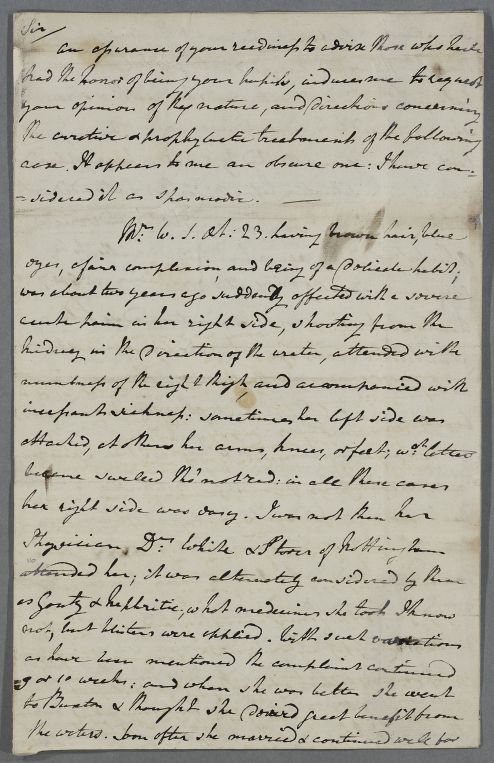 Sir
an assurance of your readiness to advise those who have
had the honor of being your pupils, induces me to request
your opinion of the nature, and directions concerning
the curative & prophylactic treatments of the following
case. It appears to me an obscure one: I have con-
=sidered it as spasmodic. —
Mrs W. S. Æt: 23. having brown hair, blue
eyes, a fair complexion, and being of a delicate habit;
was about two years ago suddenly affected with a severe
acute pain in her right side, shooting from the
kidney in the direction of the ureter, attended with
numbness of the right thigh, and accompanied with
incessant sickness: sometimes her left side was
attacked, at others her arms, knees, or feet; wch latter
became swelled tho' not red: in all these cases
her right side was easy. I was not then her
Physician. Drs White & Storer of Nottingham
attended her; it was alternately considered by them
as Gouty & Nephritic; what medicines she took I know
not, but blisters were applied. With such variations
as have been mentioned the complaint continued
9 or 10 weeks: and when she was better she went
to Buxton & thought she derived great benefit from
the waters. Soon after she married & continued well for